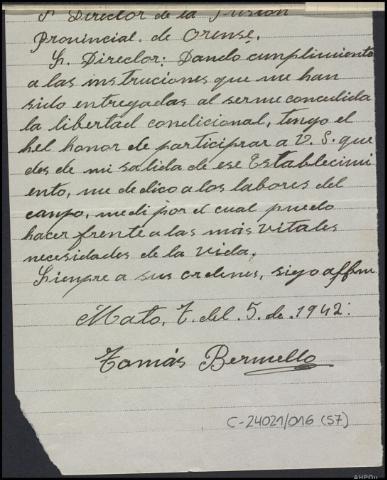 Sr Director de la Prisión
Provincial. de Orense.
Sr. Director: Dando cumplimiento
a las instruciones que me han
sido entregadas al serme concedida
la libertad condicional, tengo el
hel honor de participrar a V. S. que
des de mi salida de ese Establecimi
ento, me dedico a los labores del
campo, medi por el cual puedo
hacer frente a las más vitales
necesidades de la vida.
Siempre a sus ordenes, sigo affmo
Mato, 7. del. 5. de. 1942:
Tomás Bermello
C-24021/016 (57)
AHPOu